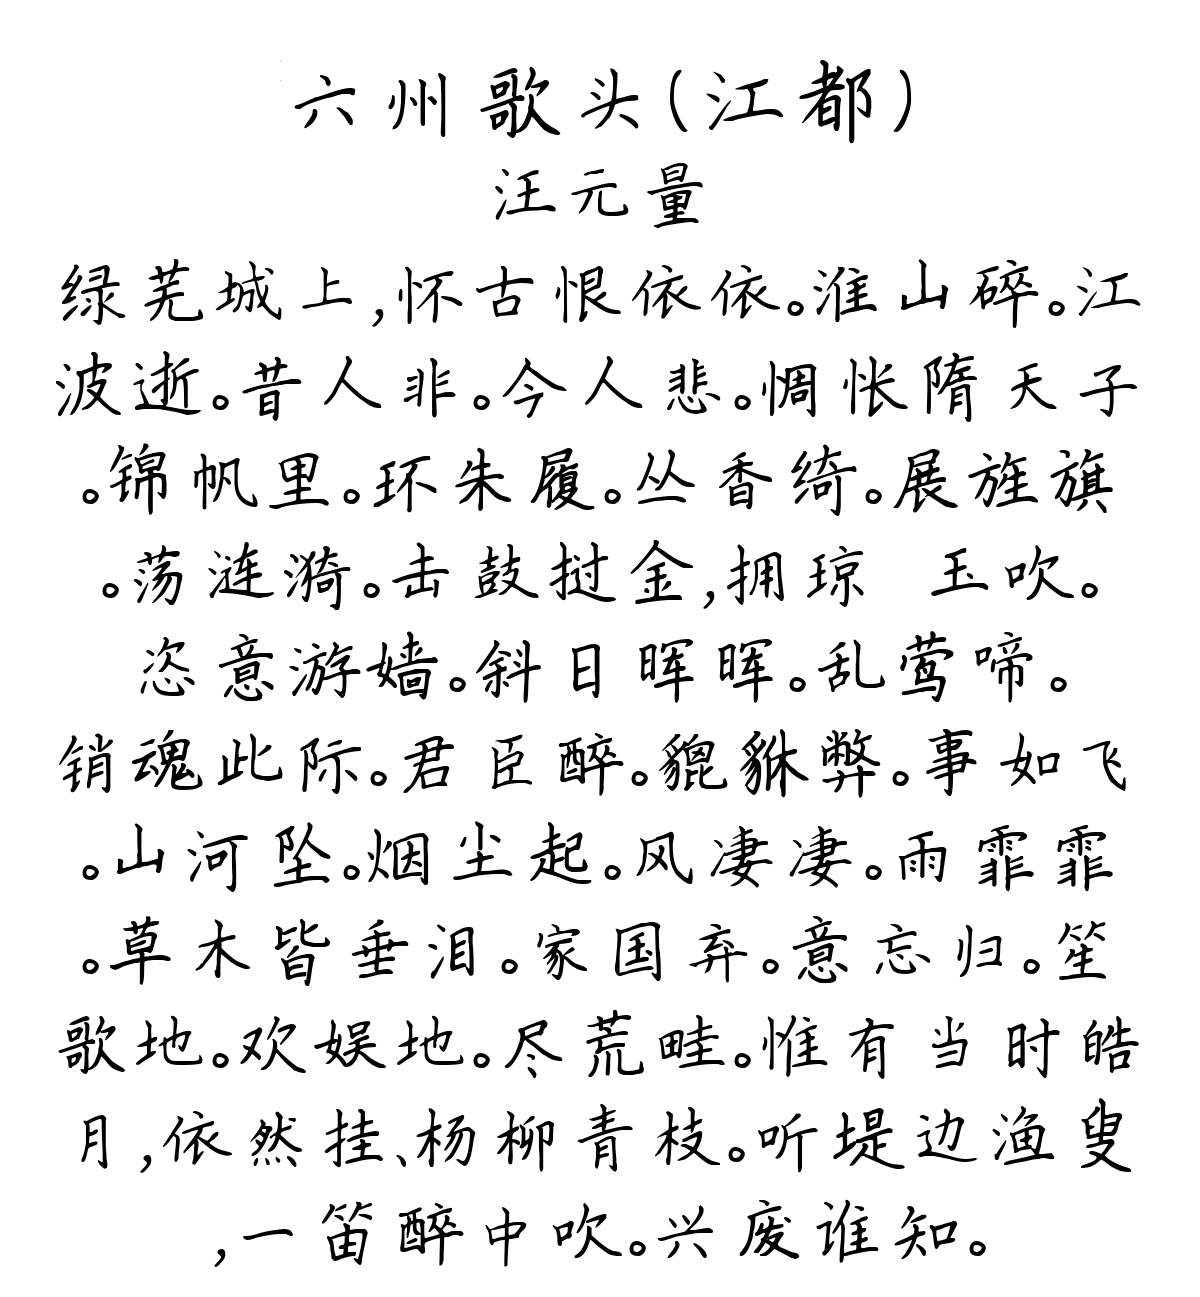 六州歌头(江都)
汪元量
绿芜城上,怀古恨依依。淮山碎。江
波逝。昔人非。今人悲。惆怅隋天子
。锦帆里。环朱履。丛香绮。展旌旗
。荡涟漪。击鼓挝金,拥琼 玉吹。
恣意游嬉。斜日晖晖。乱莺啼。
销魂此际。君臣醉。貔貅弊。事如飞
。山河坠。烟尘起。风凄凄。雨霏霏
。草木皆垂泪。家国弃。意忘归。笙
歌地。欢娱地。尽荒畦。惟有当时皓
月,依然挂、杨柳青枝。听堤边渔叟
,一笛醉中吹。兴废谁知。